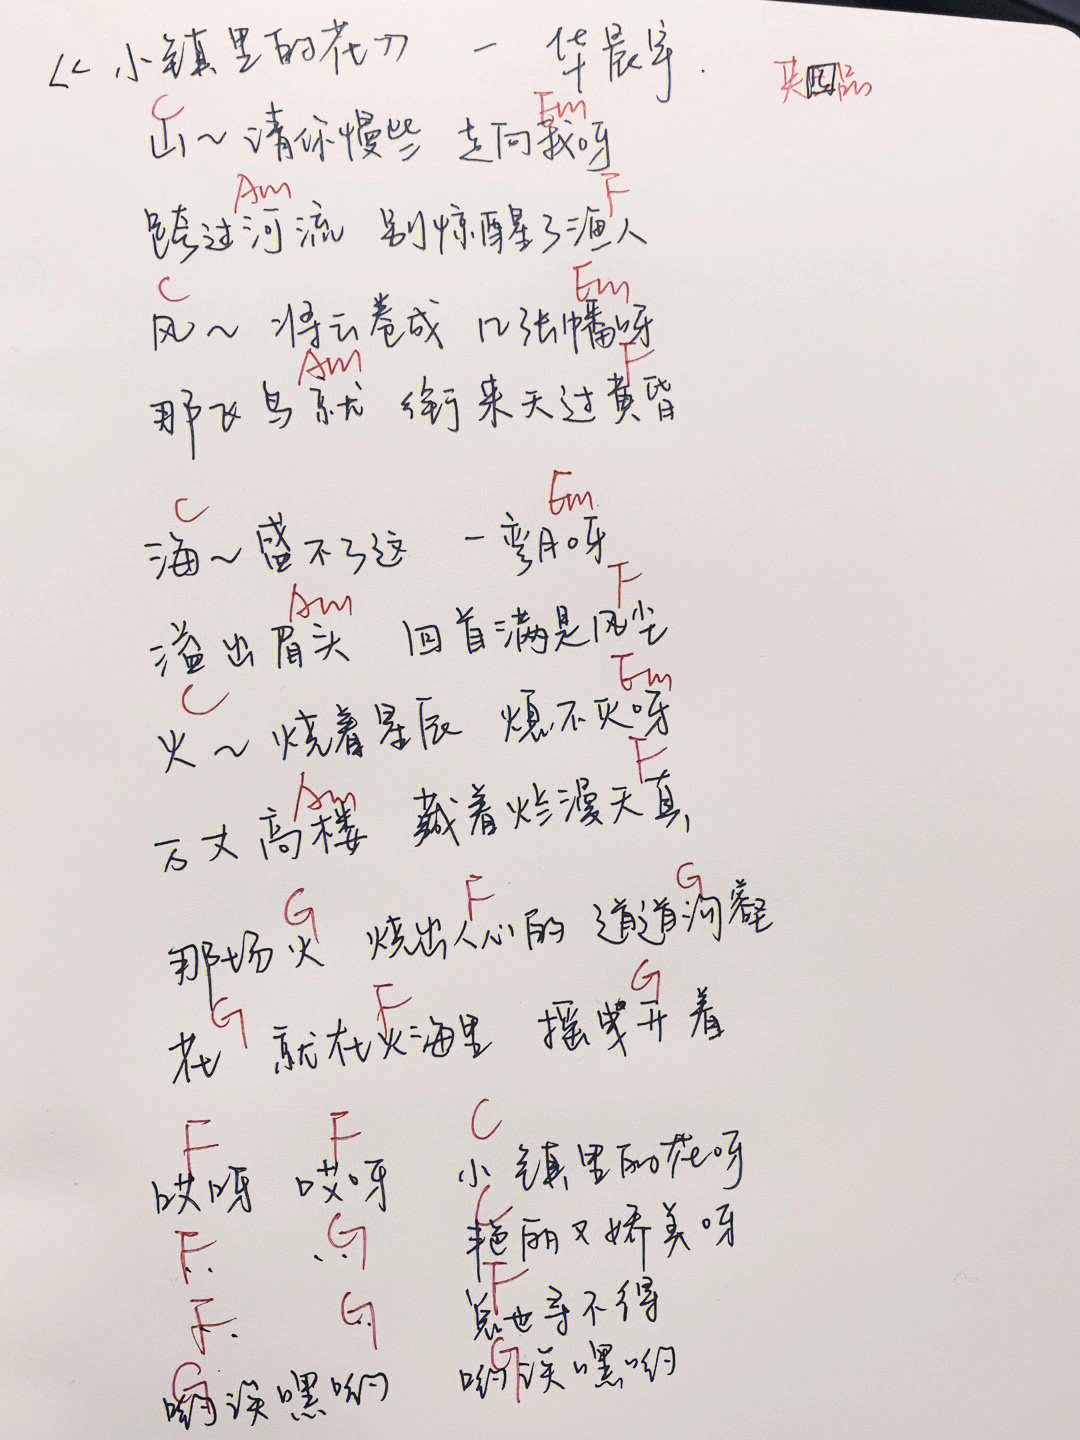 《小镇里的花》 — 华晨宇.
夹四品
C Em
山～请你慢些 走向我呀
Am F
跨过河流 别惊醒了渔人
C Em
风～将云卷成 几张幡呀
Am F
那飞鸟就 衔来天过黄昏
C Em
海～盛不了这 一弯月呀
Am F
溢出眉头 回首满是风尘
C Em
火～烧着星辰 熄不灭呀
Am F
万丈高楼 藏着烂漫天真
G F G
那场火 烧出人心的 道道沟壑
G F G
花 就在火海里 摇曳开着
F F C
哎呀 哎呀 小镇里的花呀
F.. G.. C
艳丽又娇美呀
F.. G.. F
总也寻不得
G G
哟诶嘿哟 哟诶嘿哟